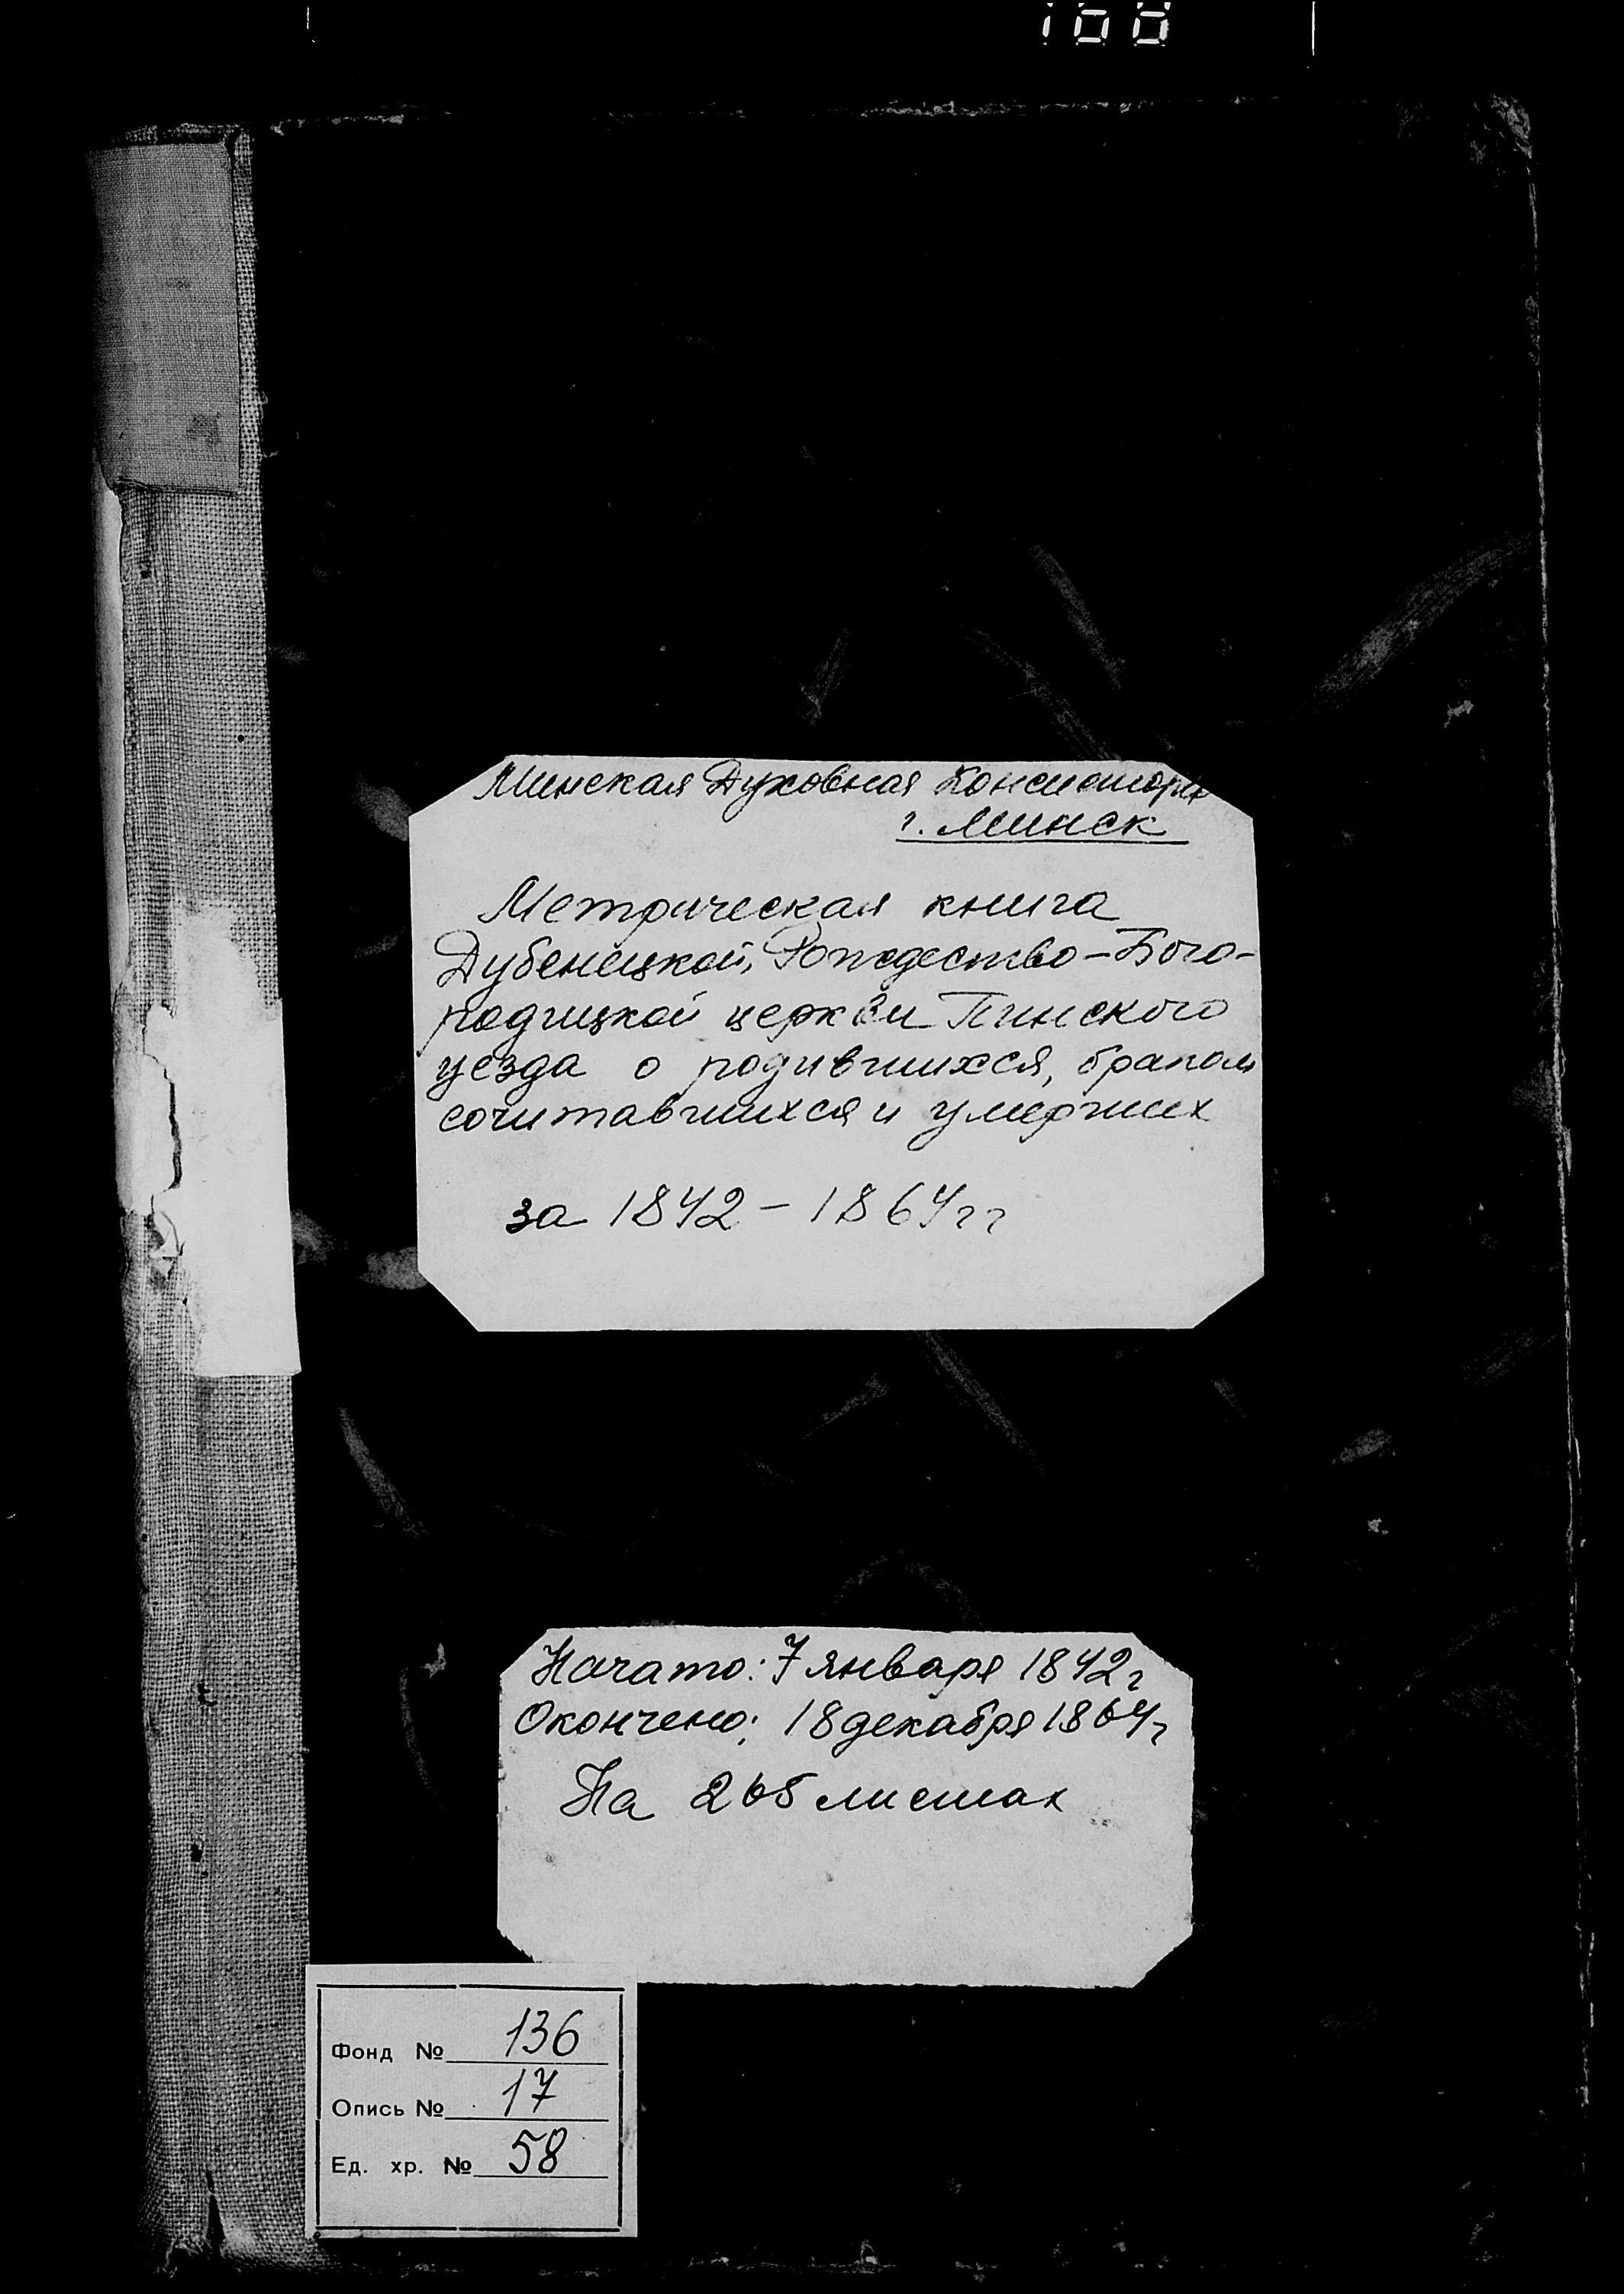 100
Минская Духовная Консистория
г. Минск
Метрическая книга
Дубенецкой, Рождество-Бого-
родицкой церкви Пинского
уезда о родившихся, браком
сочитавшихся и умерших
за 1842-1864 гг
Начато: 7 января 1842 г
Окончено: 18 декабря 1864 г
На 265 листах
Фонд № 136
Опись № 17
Ед. хр. № 58